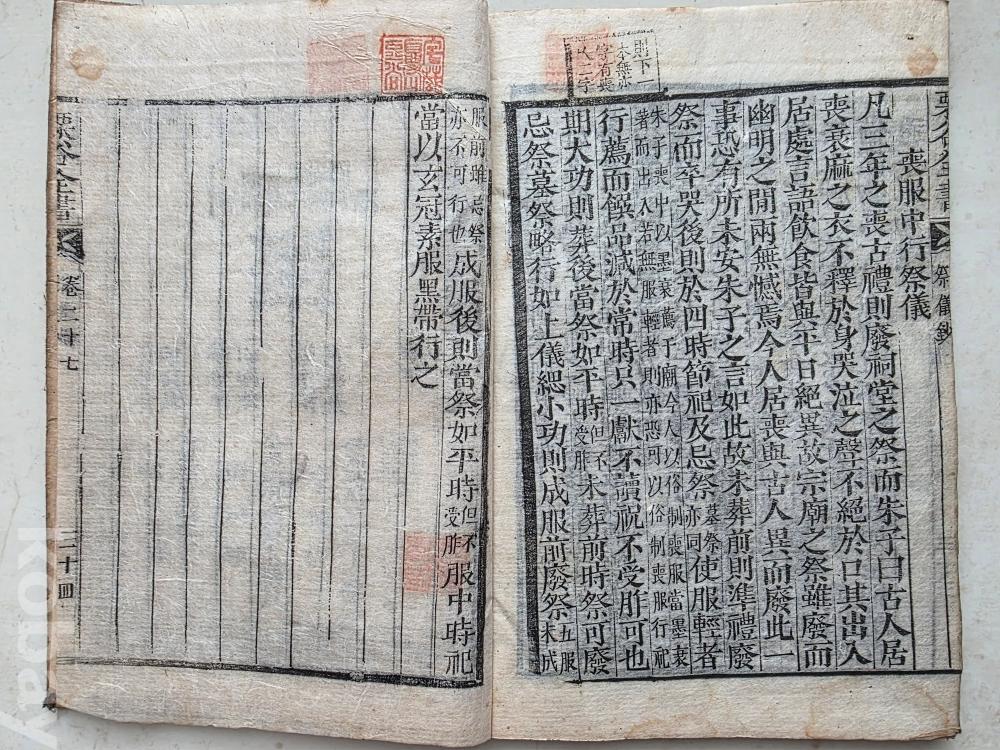 則下一
本無亦
字有喪
人二字
喪服中行祭儀
凡三年之喪古禮則廢祠堂之祭而朱子曰古人居
喪衰麻之衣不釋於身哭泣之聲不絕於口其出入
居處言語飮食皆與平日絕異故宗廟之祭雖廢而
幽明之間兩無憾焉今人居喪與古人異而廢此一
事恐有所未安朱子之言如此故未葬前則準禮廢
祭而卒哭後則於四時節祀及忌祭墓祭亦同使服輕者
朱子喪中以墨衰薦于廟今人以俗制喪服當墨衰
著而出入若無服輕者則亦恐可以俗制喪服行祀
行薦而饌品減於常時只一獻不讀祝不受胙可也
期大功則葬後當祭如平時但不受胙未葬前時祭可廢
忌祭墓祭略行如上儀緦小功則成服前廢祭五服未成
服前雖忌祭亦不可行也成服後則當祭如平時但不受胙服中時祀
當以玄冠素服黑帶行之
栗谷全書
祭儀鈔
栗谷全書
卷二十七
二十四
kobay